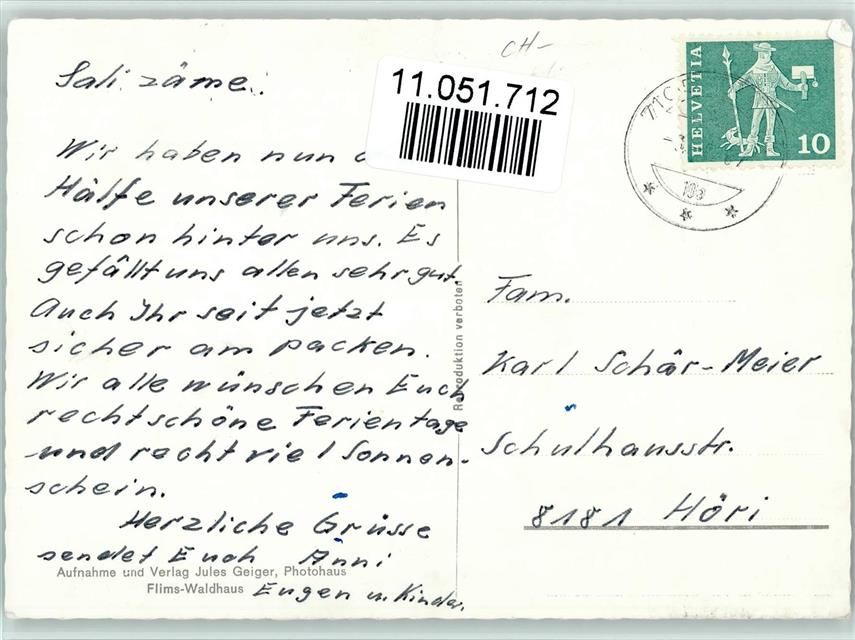 CH-
11.051.712
HELVETIA
10
Sali zäme.
Wir haben nun
Hälfe unserer Ferien
schon hinter uns. Es
gefällt uns allen sehr gut.
Auch Ihr seit jetzt
sicher am packen.
Wir alle wünschen Euch
rechtschöne Ferientage
und recht viel Sonnen-
schein.
Herzliche Grüsse
sendet Euch Anni
Eugen u. Kinder.
Fam.
Karl Schär-Meier
Schulhausstr.
8181 Höri
Reproduktion verboten
Aufnahme und Verlag Jules Geiger, Photohaus
Flims-Waldhaus